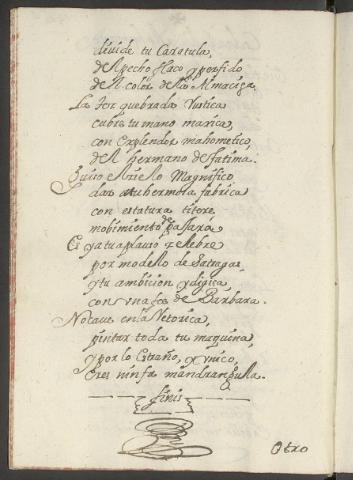 divide tu Caratula,
del pecho flaco y porfido
del color de la Almaciga.
La tez quebrada Rustica
cubra tu mano marica,
con explendor mahometico,
del hermano de fatima.
Quiso el Cielo Magnifico
dar a tu hermosa fabrica
con estatura titere
mobimiento de Passara
Es ya tu aplauso zelebre
por modello de Satrapas
y tu ambicion ydigica
con una fos de Barbara.
Notaus en la Retorica,
pintar toda tu maquina,
y por lo Estraño, y Vnico,
Eres ninfa mandrangulla.
finis
Otro